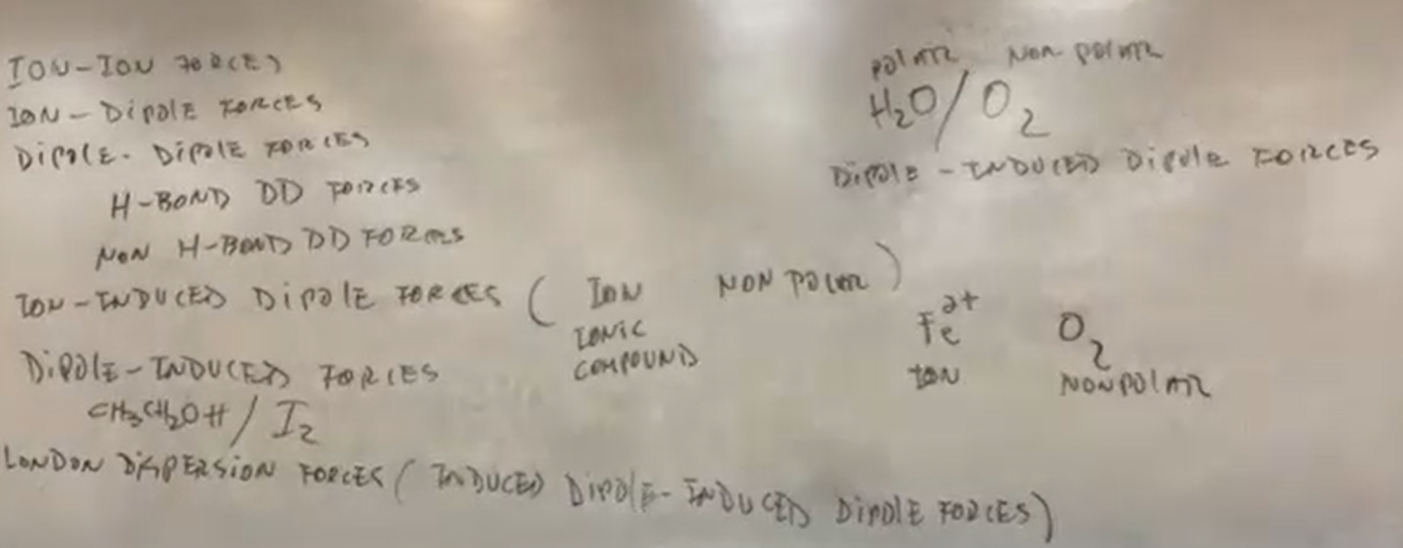 ION-ION FORCES
ION-DIPOLE FORCES
DIPOLE-DIPOLE FORCES
H-BOND DD FORCES
NON H-BOND DD FORCES
ION-INDUCED DIPOLE FORCES ( ION NON POLAR )
IONIC
COMPOUND
DIPOLE-INDUCED FORCES
CH3CH2OH / I2
LONDON DISPERSION FORCES ( INDUCED DIPOLE-INDUCED DIPOLE FORCES)
POLAR NON POLAR
H2O / O2
DIPOLE-INDUCED DIPOLE FORCES
Fe2+ O2
ION NONPOLAR